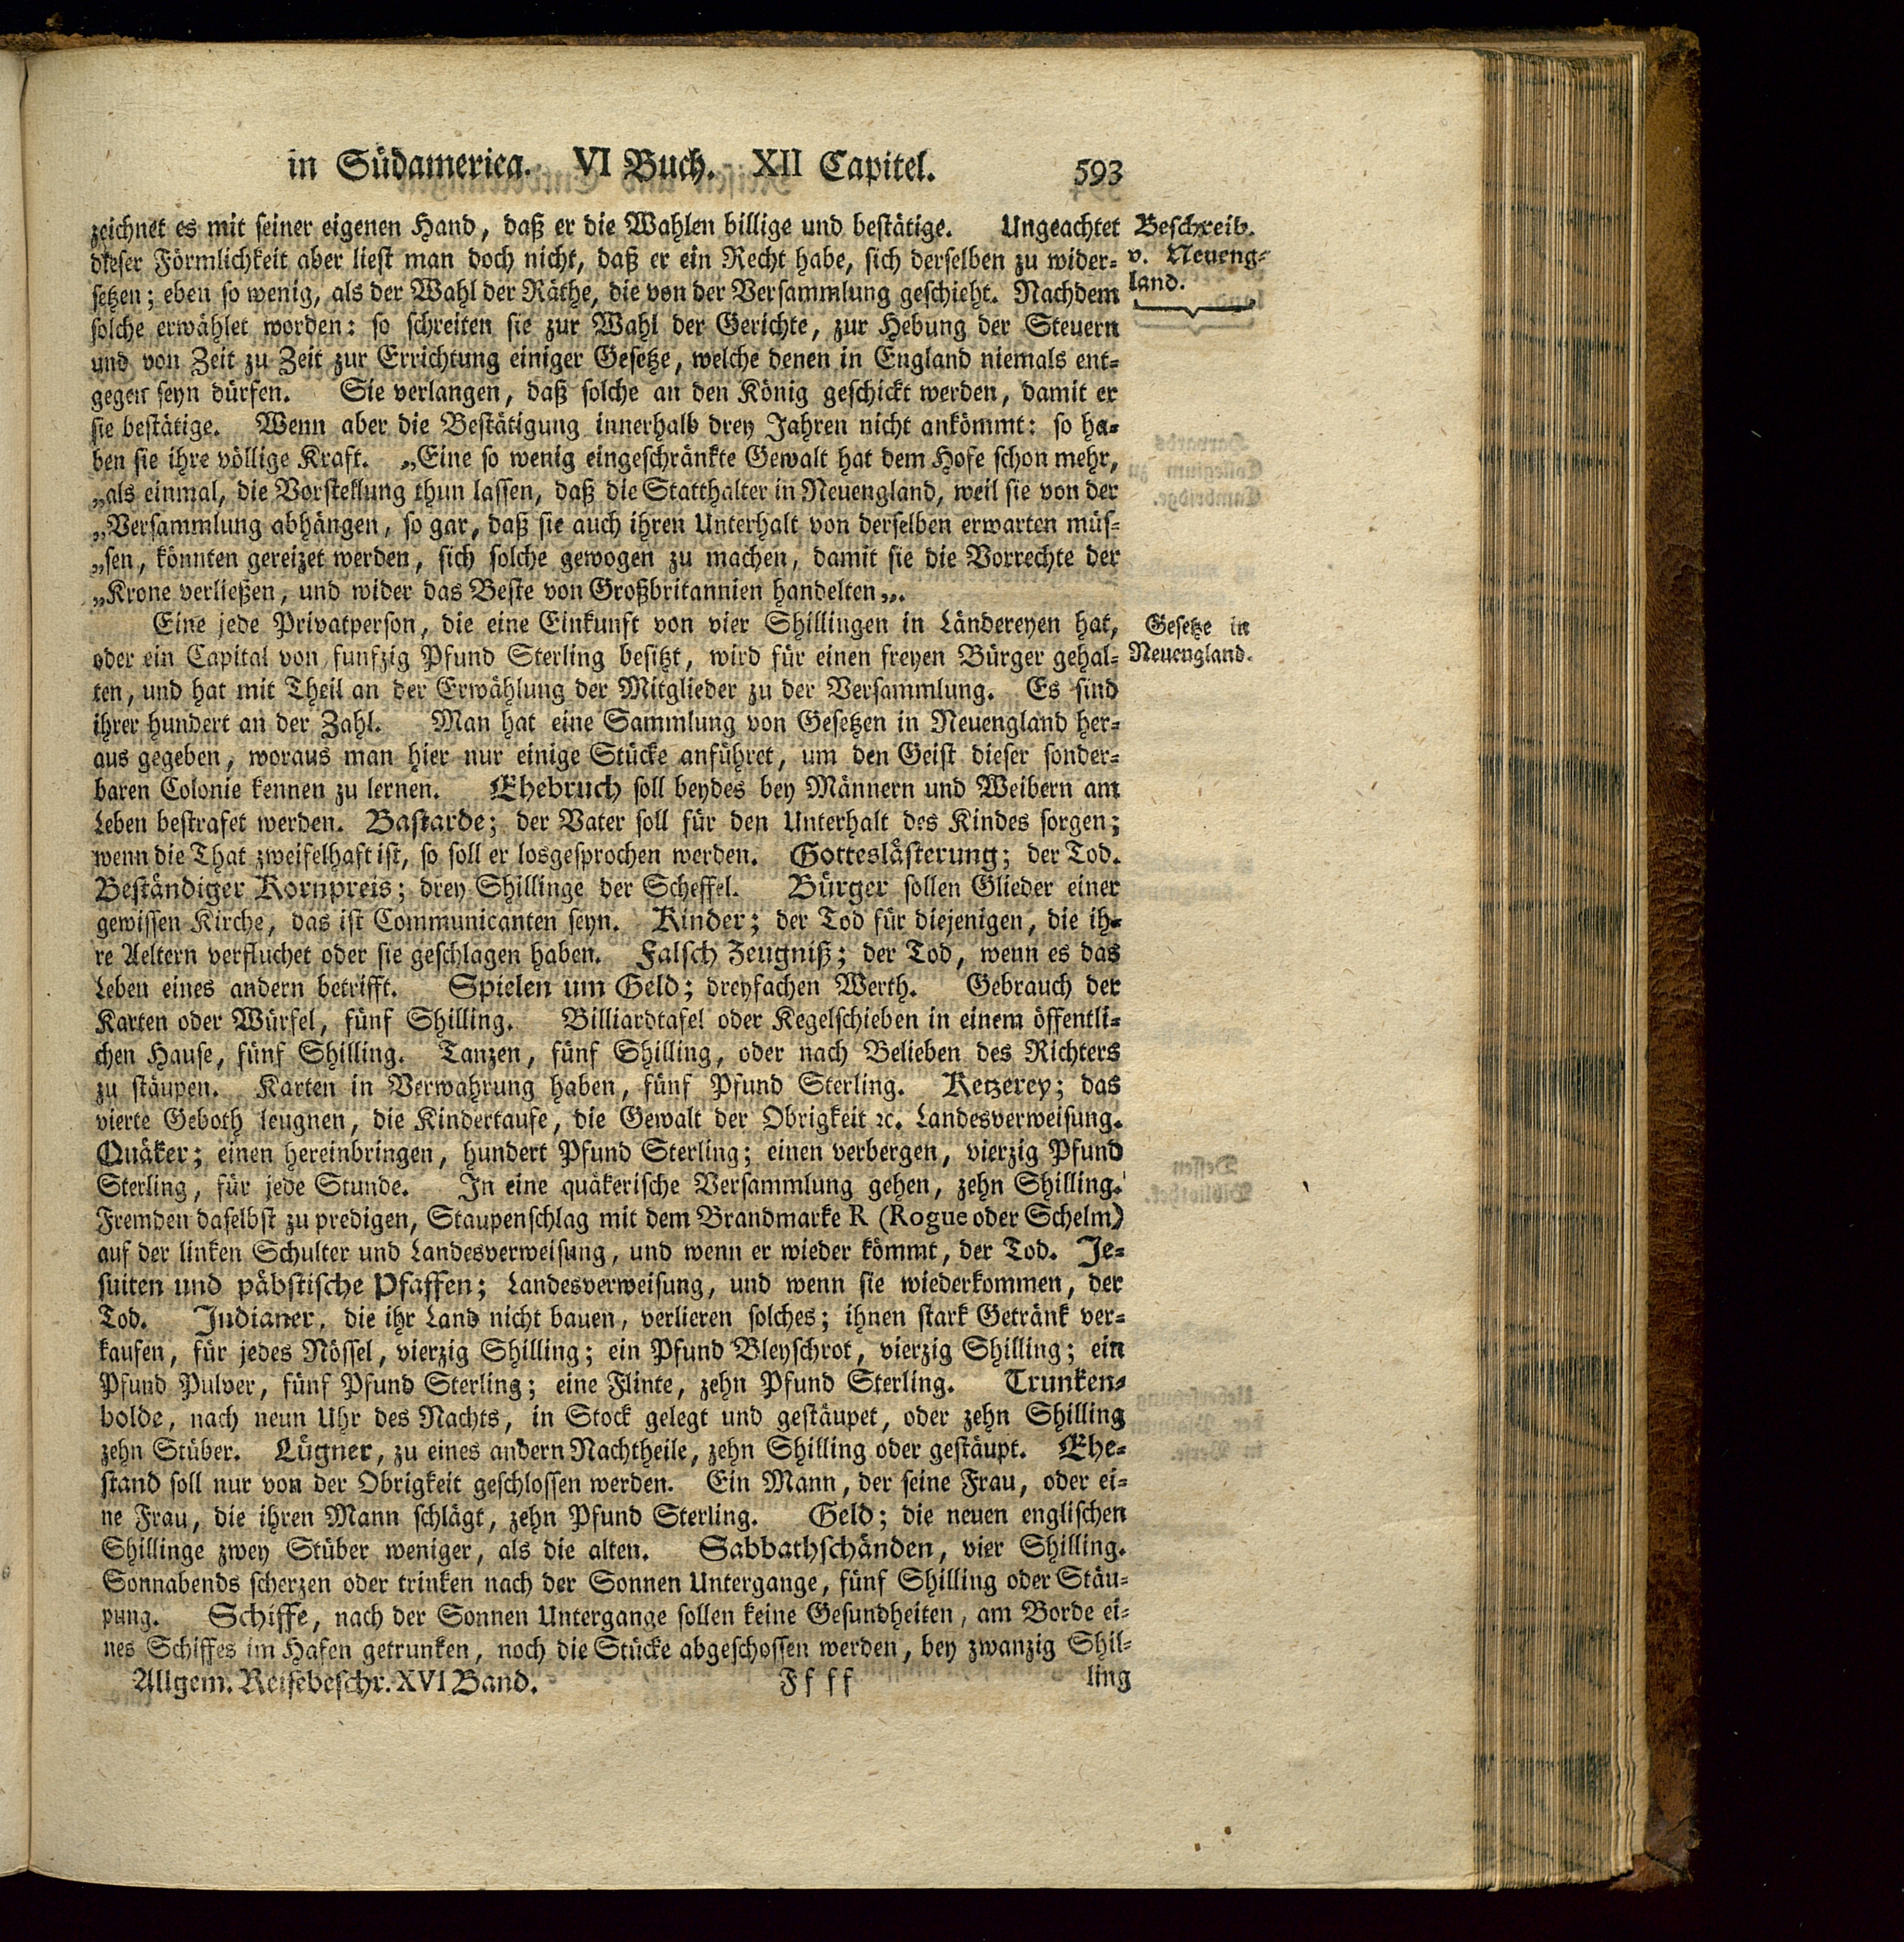 in Südamerica. VI Buch. XII Capitel. 593
zeichnet es mit seiner eigenen Hand, daß er die Wahlen billige und bestätige. Ungeachtet
dieser Förmlichkeit aber liest man doch nicht, daß er ein Recht habe, sich derselben zu wider-
setzen; eben so wenig, als der Wahl der Räthe, die von der Versammlung geschieht. Nachdem
solche erwählet worden: so schreiten sie zur Wahl der Gerichte, zur Hebung der Steuern
und von Zeit zu Zeit zur Errichtung einiger Gesetze, welche denen in England niemals ent-
gegen seyn dürfen. Sie verlangen, daß solche an den König geschickt werden, damit er
sie bestätige. Wenn aber die Bestätigung innerhalb drey Jahren nicht ankömmt: so ha-
ben sie ihre völlige Kraft. „Eine so wenig eingeschränkte Gewalt hat dem Hofe schon mehr,
„als einmal, die Vorstellung thun lassen, daß die Statthalter in Neuengland, weil sie von der
„Versammlung abhängen, so gar, daß sie auch ihren Unterhalt von derselben erwarten müs-
„sen, könnten gereizet werden, sich solche gewogen zu machen, damit sie die Vorrechte der
„Krone verließen, und wider das Beste von Großbritannien handelten„.
Beschreib.
v. Neueng-
land.
Eine jede Privatperson, die eine Einkunft von vier Shillingen in Ländereyen hat,
oder ein Capital von funfzig Pfund Sterling besitzt, wird für einen freyen Bürger gehal-
ten, und hat mit Theil an der Erwählung der Mitglieder zu der Versammlung. Es sind
ihrer hundert an der Zahl. Man hat eine Sammlung von Gesetzen in Neuengland her-
aus gegeben, woraus man hier nur einige Stücke anführet, um den Geist dieser sonder-
baren Colonie kennen zu lernen. Ehebruch soll beydes bey Männern und Weibern am
Leben bestrafet werden. Bastarde; der Vater soll für den Unterhalt des Kindes sorgen;
wenn die That zweifelhaft ist, so soll er losgesprochen werden. Gotteslästerung; der Tod.
Beständiger Kornpreis; drey Shillinge der Scheffel. Bürger sollen Glieder einer
gewissen Kirche, das ist Communicanten seyn. Kinder; der Tod für diejenigen, die ih-
re Aeltern verfluchet oder sie geschlagen haben. Falsch Zeugniß; der Tod, wenn es das
Leben eines andern betrifft. Spielen um Geld; dreyfachen Werth. Gebrauch der
Karten oder Würfel, fünf Shilling. Billiardtafel oder Kegelschieben in einem öffentli-
chen Hause, fünf Shilling. Tanzen, fünf Shilling, oder nach Belieben des Richters
zu stäupen. Karten in Verwahrung haben, fünf Pfund Sterling. Ketzerey; das
vierte Geboth leugnen, die Kindertaufe, die Gewalt der Obrigkeit ꝛc. Landesverweisung.
Quäker; einen hereinbringen, hundert Pfund Sterling; einen verbergen, vierzig Pfund
Sterling, für jede Stunde. In eine quäkerische Versammlung gehen, zehn Shilling.
Fremden daselbst zu predigen, Staupenschlag mit dem Brandmarke R (Rogue oder Schelm)
auf der linken Schulter und Landesverweisung, und wenn er wieder kömmt, der Tod. Je-
suiten und päbstische Pfaffen; Landesverweisung, und wenn sie wiederkommen, der
Tod. Indianer, die ihr Land nicht bauen, verlieren solches; ihnen stark Getränk ver-
kaufen, für jedes Nössel, vierzig Shilling; ein Pfund Bleyschrot, vierzig Shilling; ein
Pfund Pulver, fünf Pfund Sterling; eine Flinte, zehn Pfund Sterling. Trunken-
bolde, nach neun Uhr des Nachts, in Stock gelegt und gestäupet, oder zehn Shilling
zehn Stüber. Lügner, zu eines andern Nachtheile, zehn Shilling oder gestäupt. Ehe-
stand soll nur von der Obrigkeit geschlossen werden. Ein Mann, der seine Frau, oder ei-
ne Frau, die ihren Mann schlägt, zehn Pfund Sterling. Geld; die neuen englischen
Shillinge zwey Stüber weniger, als die alten. Sabbathschänden, vier Shilling.
Sonnabends scherzen oder trinken nach der Sonnen Untergange, fünf Shilling oder Stäu-
pung. Schiffe, nach der Sonnen Untergange sollen keine Gesundheiten, am Borde ei-
nes Schiffes im Hafen getrunken, noch die Stücke abgeschossen werden, bey zwanzig Shil-
Gesetze in
Neuengland.
Allgem. Reisebeschr. XVI Band. Ffff ling